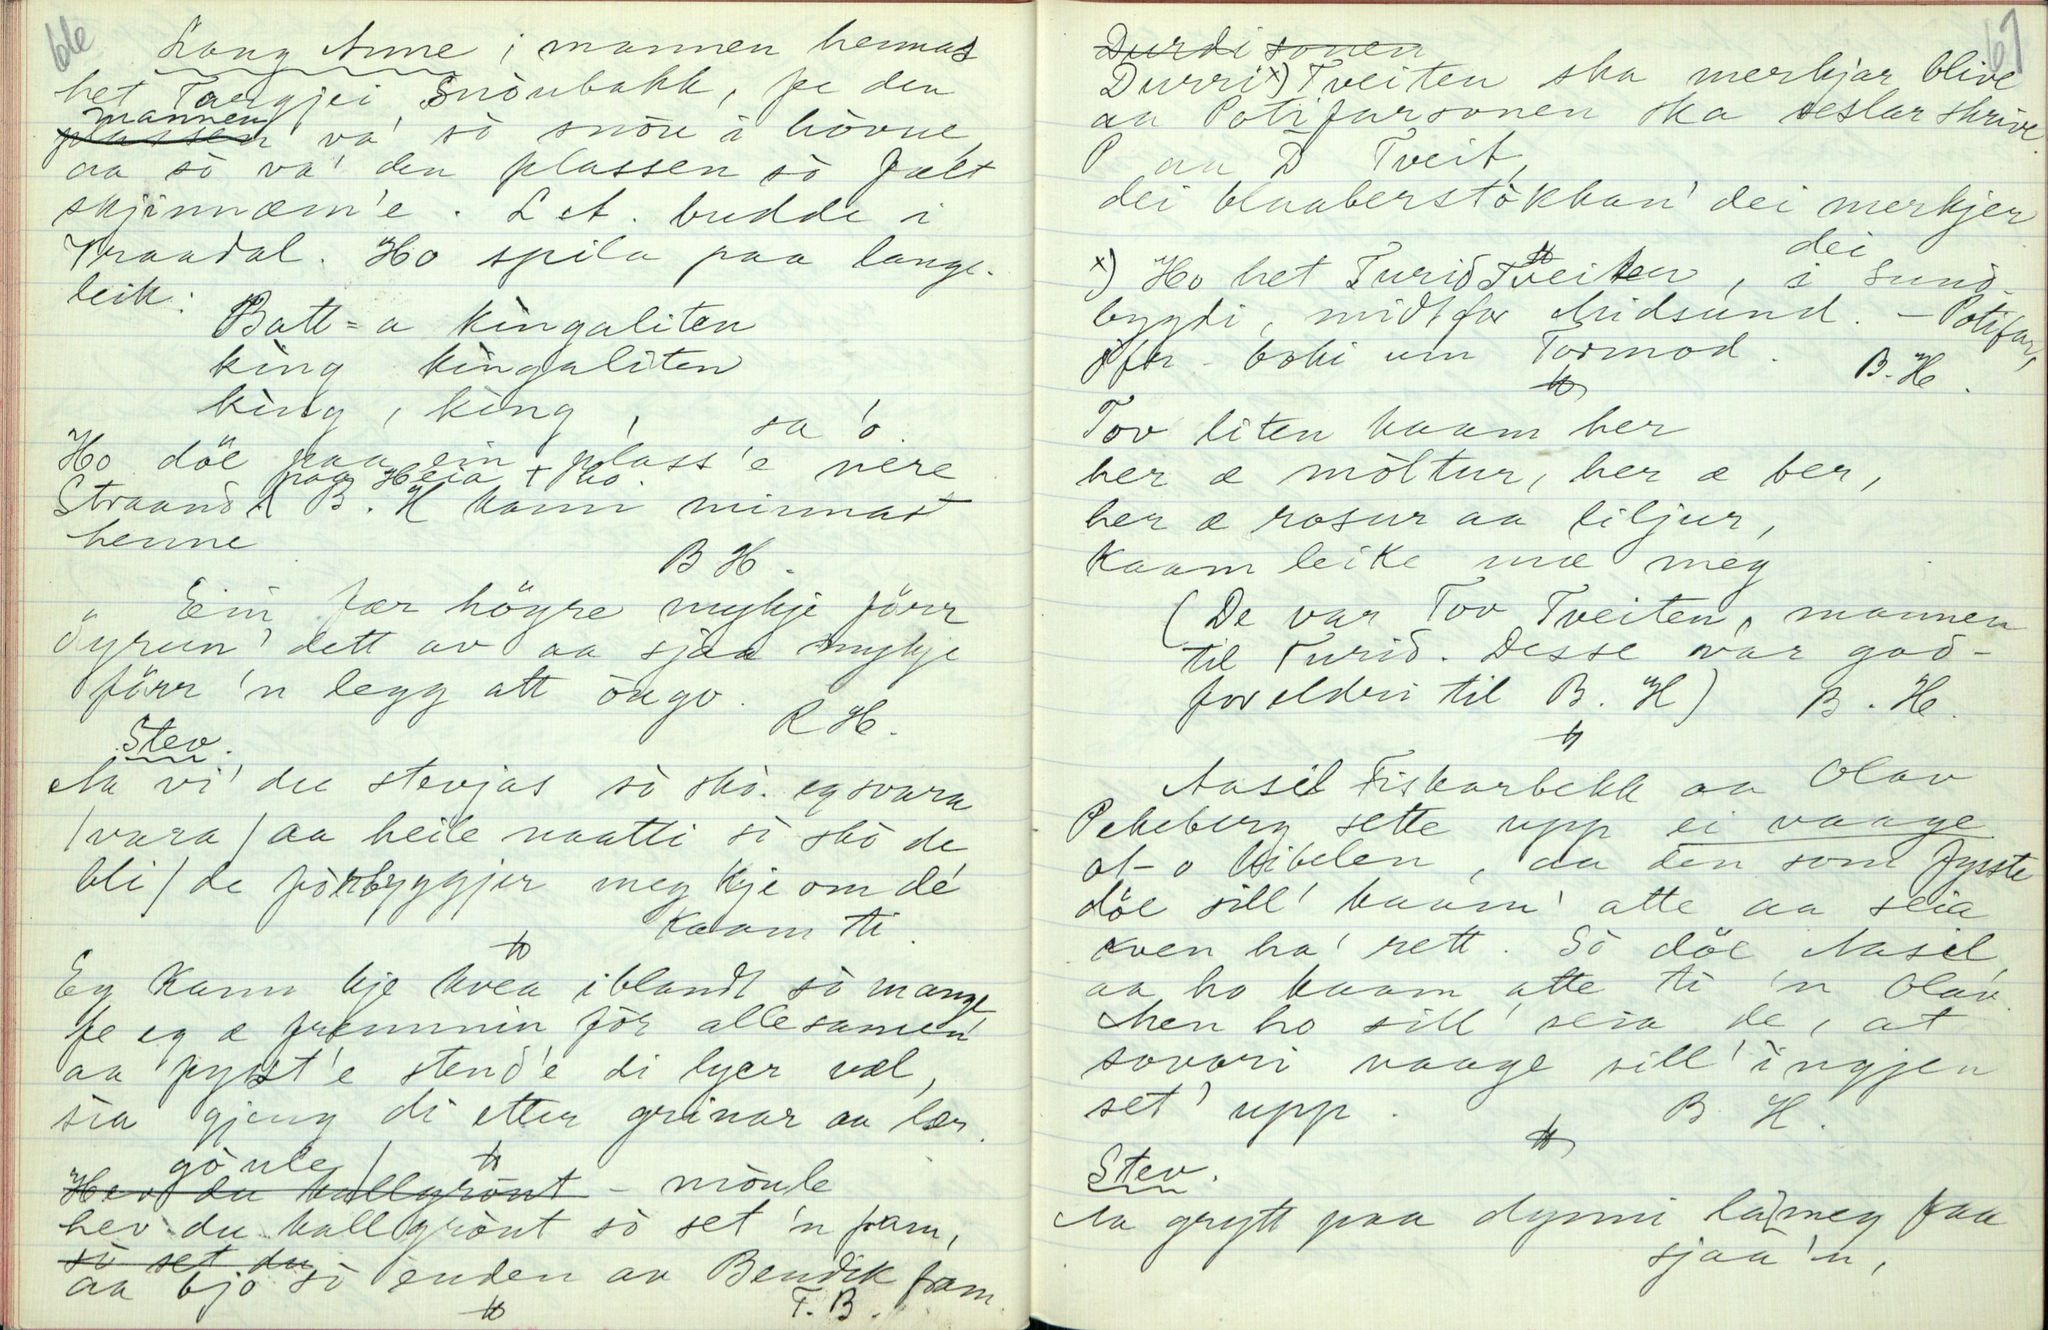 66
Lang Anne, mannen hennas
het Targjei Snòubakk, fe den
mannen
plassen va' sò snòu i hòvue,
aa sò va' den plassen sò fælt
skjinnæm'e. L A. budde i
Traadal. Ho spila paa lange-
leik:
Batt-a kingaliten
king kingaliten
king, king,
sa 'o.
Ho döe paa ein plass'e nere
paa Heia + ho
Straand B. H kann minnast
henne
B H.
Ein fær högre mykje förr
öyrun' dett av aa sjaa mykje
förr 'n legg att òugo.
R H.
Stev.
Aa vi' du stevjas sò skò. eg svara
/vara/ aa heile naatti sò skò de
bli / de förbyggjer meg kje om dé
kaam ti.
Eg kann kje kvea iblandt sò mange
fe eg æ fremmin för alle samen'
aa fysst'e stend'e di lyer væl,
sia gjeng di etter grinar aa lær.
göule /
Hev du kallgrönt - mòule
hev du kallgrònt sò set 'n fram,
sò set du
aa bjo sò enden av Bendik fram.
T. B.
67
Durdi sonen
Durri x) Tveiten ska merkjar blive
aa Potifarsonen ska seslar skrive.
P aa D Tveit,
dei blaaberstòkkan' dei merkjer
dei
x) Ho het Turid Tveiten, i Sund-
bygdi, midt for Midsund. - Potifar,
öfn - boki um Tormod.
B. H.
Tov liten kaam her
her æ mòltur, her æ ber,
her æ rosur aa liljur,
kaam leike mæ meg
(De var Tov Tveiten, mannen
til Turid. Desse var god-
foreldri til B. H)
B. H.
Aasil Fiskarbekk aa Olav
Pekeberg sette upp ei vaage
at-o bibelen, aa den som fysste
döe sill' kaam' atte aa seia
kven ha' rett. Sò döe Aasil,
aa ho kaam atte ti 'n Olav.
Men ho sill' seia de, at
sovori vaage sill' ingjen
set' upp.
B. H.
Stev.
Aa grytt paa dynni la meg faa
sjaa 'n,